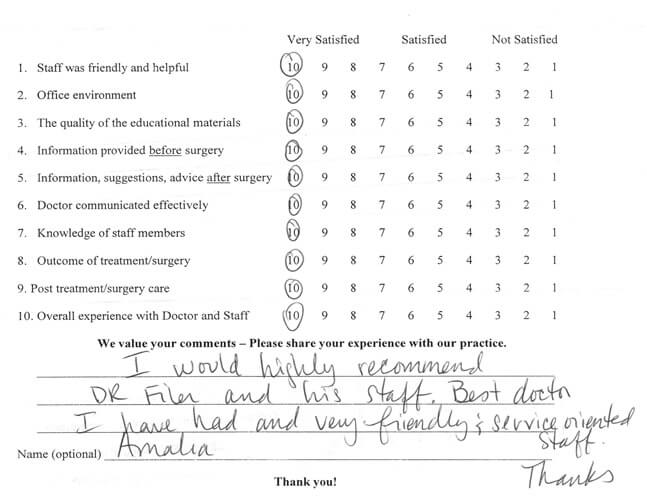 Very Satisfied Satisfied Not Satisfied
1. Staff was friendly and helpful 10 9 8 7 6 5 4 3 2 1
2. Office environment 10 9 8 7 6 5 4 3 2 1
3. The quality of the educational materials 10 9 8 7 6 5 4 3 2 1
4. Information provided before surgery 10 9 8 7 6 5 4 3 2 1
5. Information, suggestions, advice after surgery 10 9 8 7 6 5 4 3 2 1
6. Doctor communicated effectively 10 9 8 7 6 5 4 3 2 1
7. Knowledge of staff members 10 9 8 7 6 5 4 3 2 1
8. Outcome of treatment/surgery 10 9 8 7 6 5 4 3 2 1
9. Post treatment/surgery care 10 9 8 7 6 5 4 3 2 1
10. Overall experience with Doctor and Staff 10 9 8 7 6 5 4 3 2 1
We value your comments – Please share your experience with our practice.
I would highly recommend
DR Filer and his staff. Best doctor
I have had and very friendly & service oriented
staff.
Name (optional) Amalia
Thanks
Thank you!